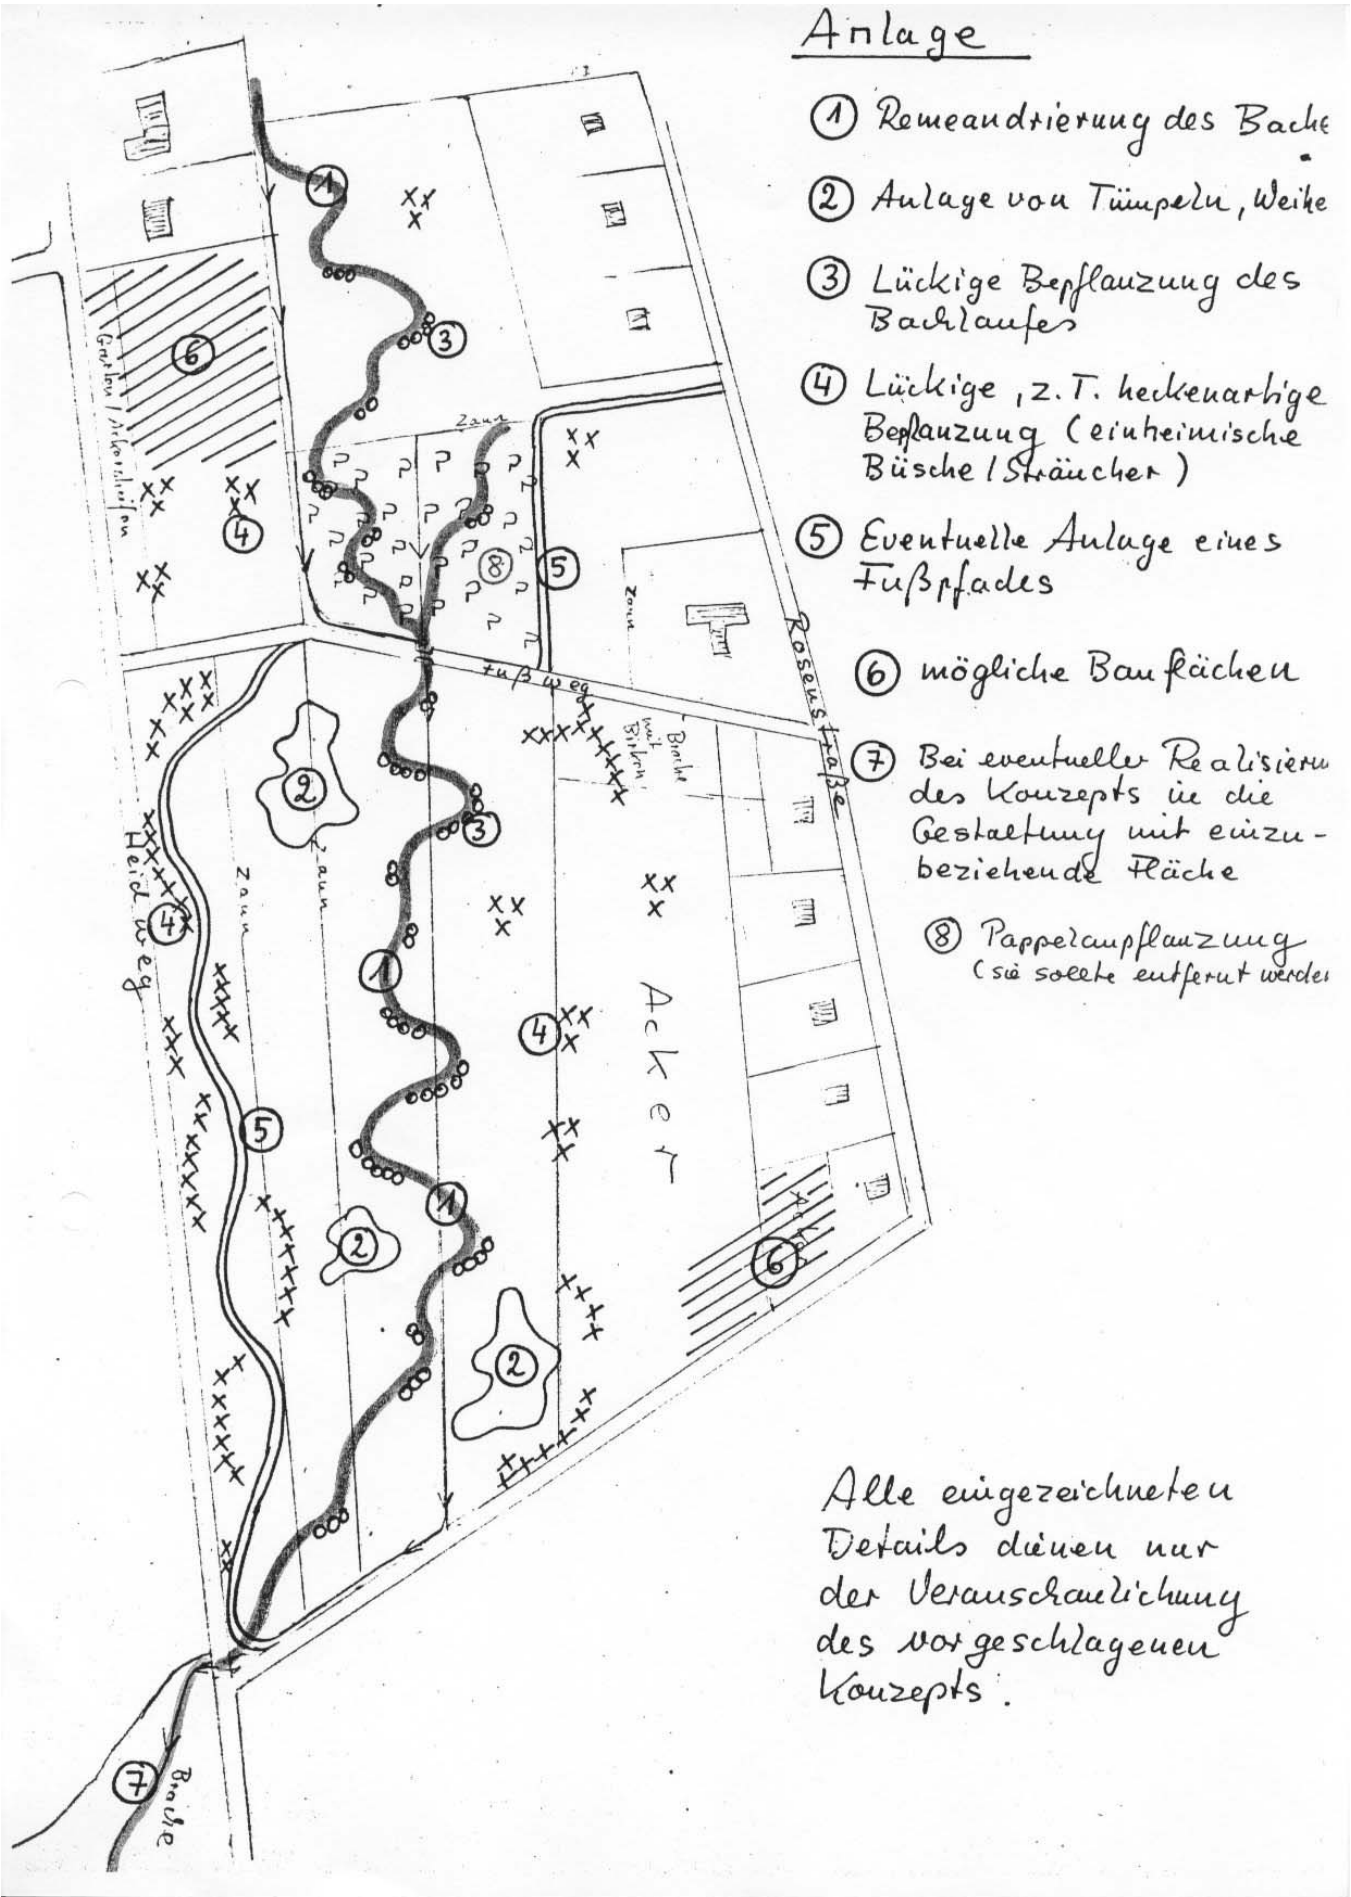 Anlage
① Remeandrierung des Bache
② Anlage von Tümpeln, Weihe
③ Lückige Bepflanzung des
Bachlaufes
④ Lückige, z.T. heckenartige
Bepflanzung (einheimische
Büsche/Sträucher)
⑤ Eventuelle Anlage eines
Fußpfades
⑥ mögliche Bauflächen
⑦ Bei eventueller Realisieru
des Konzepts in die
Gestaltung mit einzu-
beziehende Fläche
⑧ Pappelanpflanzung
(sie sollte entfernt werde
Alle eingezeichneten
Details dienen nur
der Veranschaulichung
des vorgeschlagenen
Konzepts.
1
6
3
Zaun
4
8
5
Zaun
Rosenstraße
Fußweg
Brache
mit
Birken
2
3
Heidweg
Zaun
Zaun
4
1
Acker
4
5
1
2
6
Acker
2
7
Brache